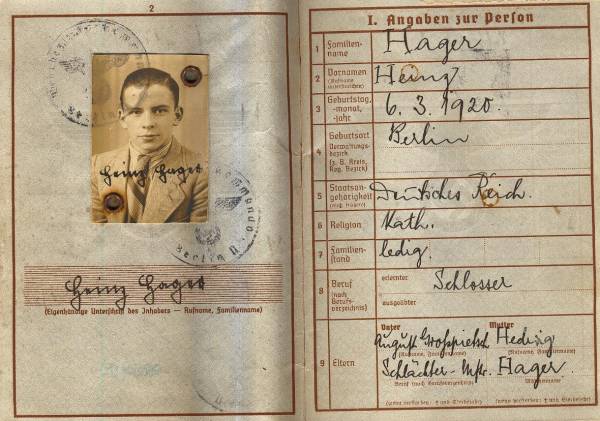 2
Heinz Hager
Heinz Hager
(Eigenhändige Unterschrift des Inhabers — Rufname, Familienname)
I. Angaben zur Person
1 Familien-name Hager
2 Vornamen (Rufname unterstreichen) Heinz
3 Geburtstag, -monat, -jahr 6. 3. 1920.
4 Geburtsort Verwaltungs-bezirk (z. B. Kreis, Reg. Bezirk) Berlin
5 Staatsan-gehörigkeit (auch frühere) Deutsches Reich.
6 Religion Kath.
7 Familien-stand ledig.
8 Beruf (nach Berufs-verzeichnis) erlernter Schlosser
ausgeübter
Vater Mutter
August Groppietsch Hedwig
(Rufname, Familienname) (Rufname, Familienname)
9 Eltern Schlächter-Mstr. Hager.
Beruf (nach Berufsverzeichnis) Mädchenname
(wenn verstorben: † und Sterbejahr) (wenn verstorben: † und Sterbejahr)